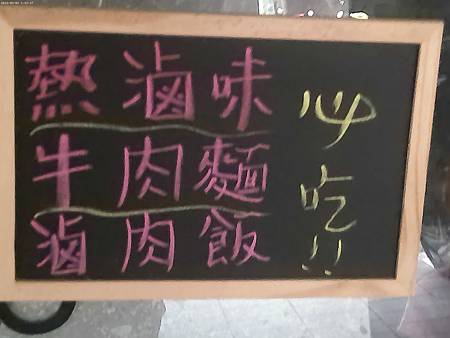 熱滷味
牛肉麵
滷肉飯
必吃!!